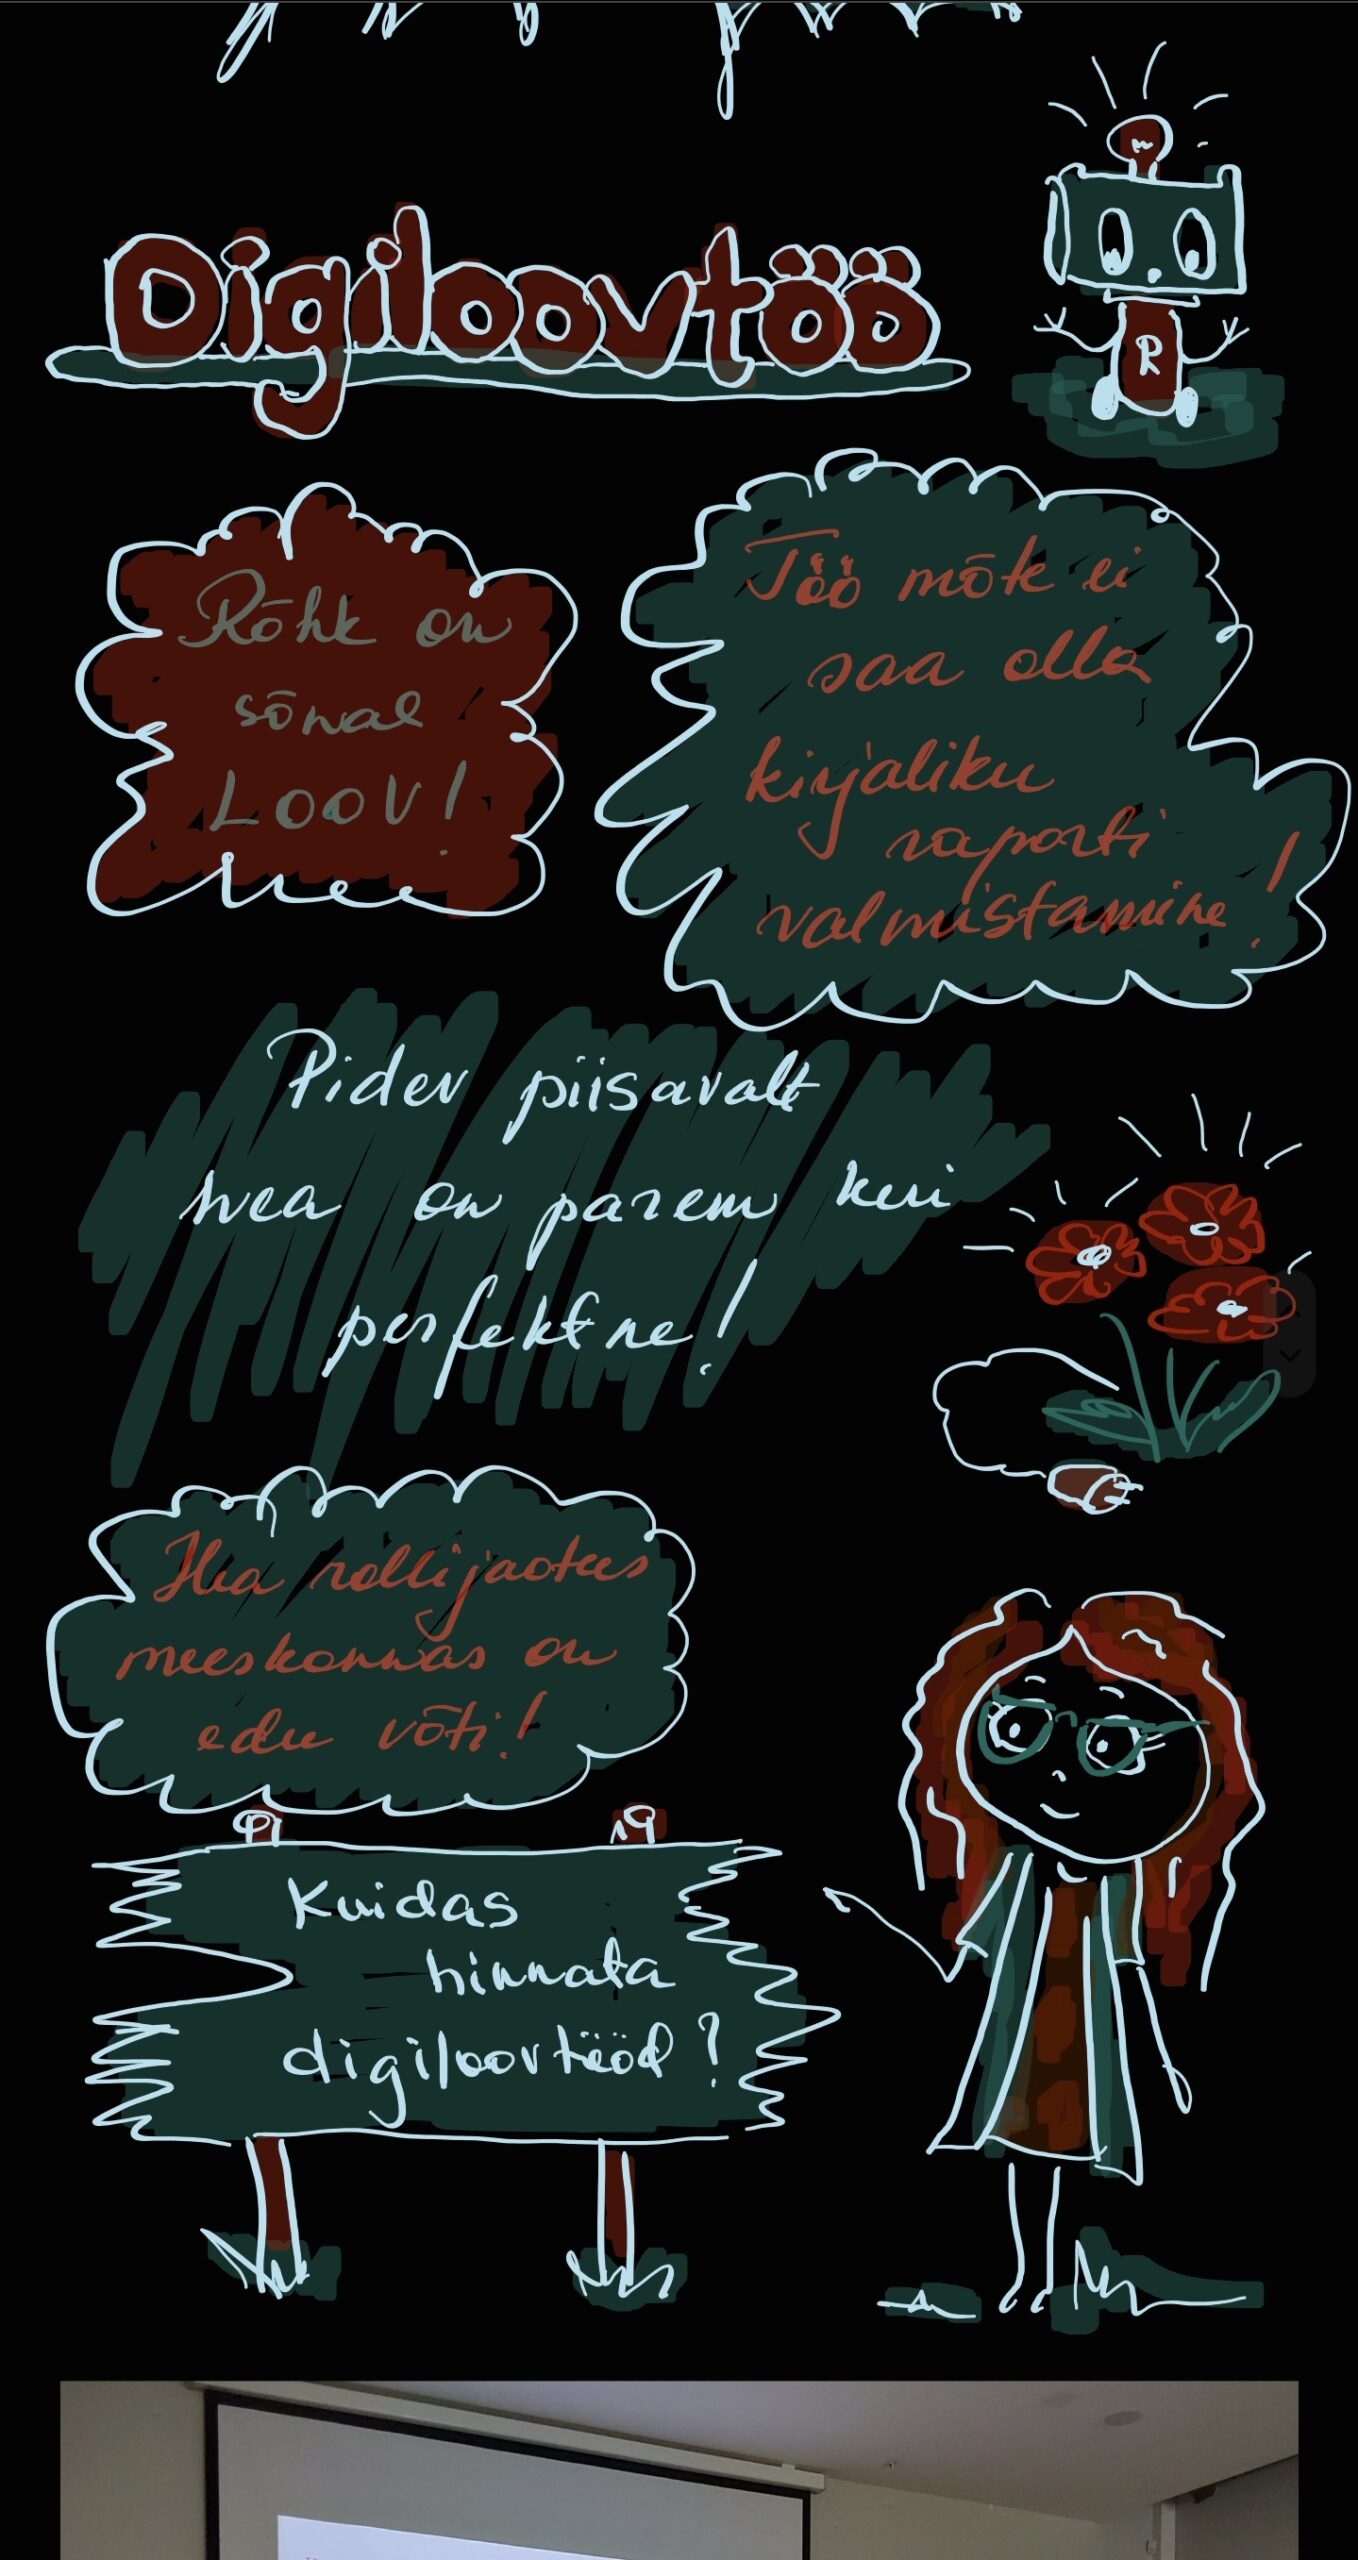 Digiloovtöö
R
Rõhk on
sõnal
LOOV!
Töö mõte ei
saa olla
kirjaliku
raporti
valmistamine!
Pidev piisavalt
hea on parem kui
perfektne!
Hea rollijaotus
meeskonnas on
edu võti!
Kuidas
hinnata
digiloovtööd?